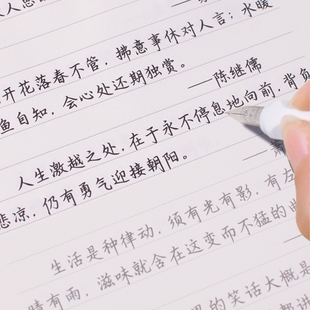 开花落春不管，拂意事休对人言；水暖
鱼自知，会心处还期独赏。
——陈继儒
人生激越之处，在于永不停息地向前，背负
悲凉，仍有勇气迎接朝阳。
生活是种律动，须有光有影，有左
晴有雨，滋味就含在这变而不猛的曲
的笑话大概是